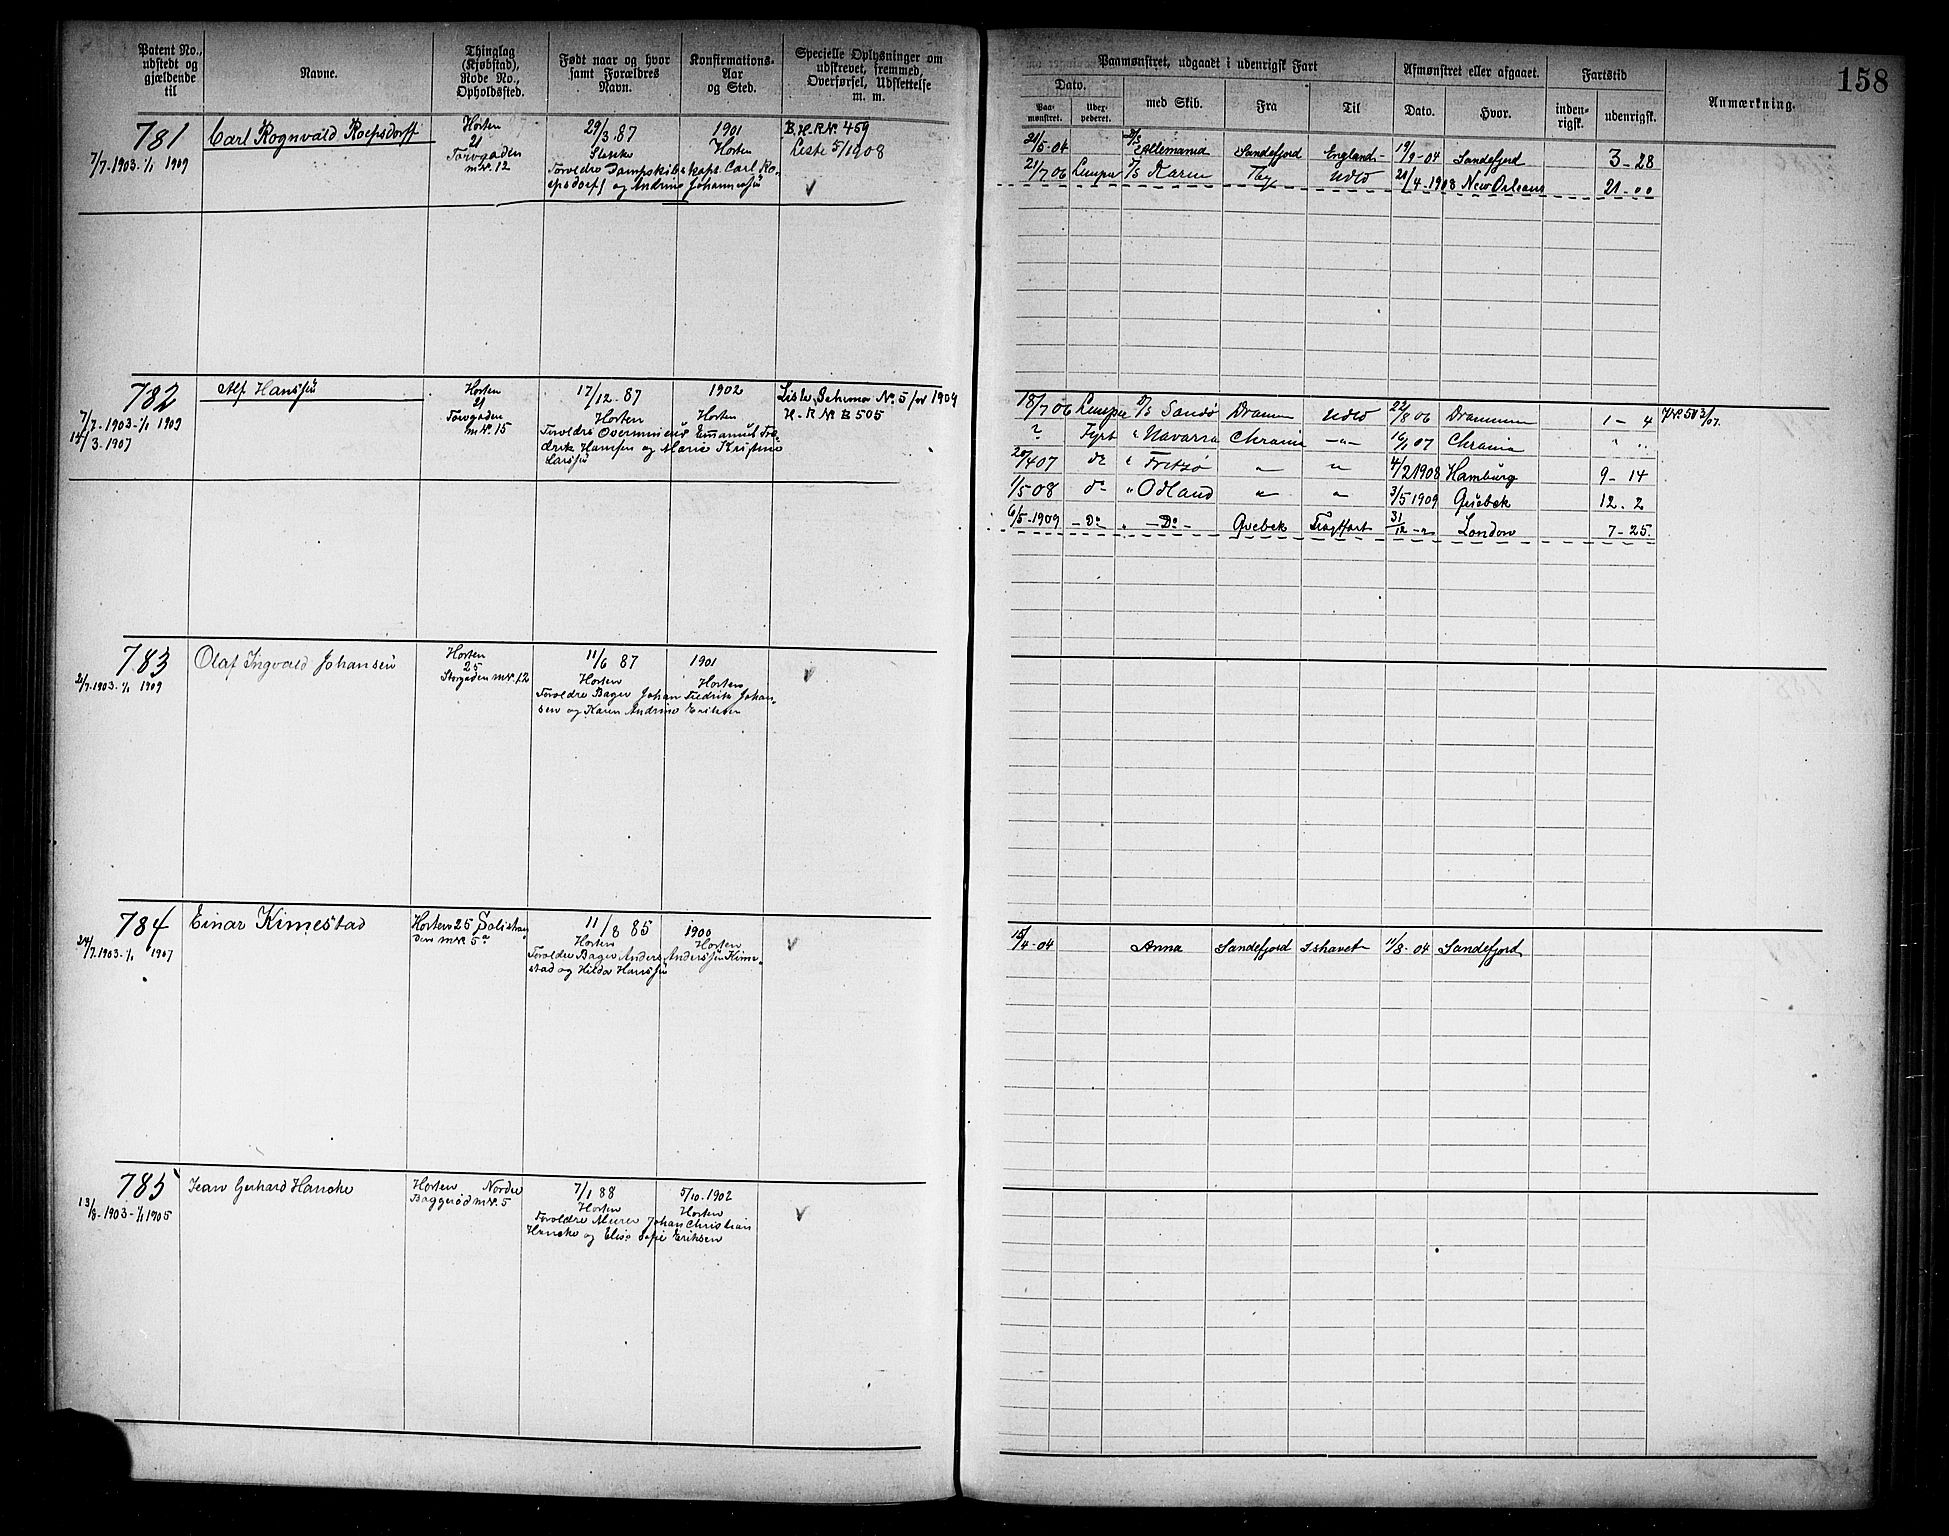 158
Patent No., udstedt og gjældende til
Navne.
Thinglag (Kjøbstad), Rode No., Opholdssted.
Født naar og hvor samt Forældres Navn.
Konfirmations- Aar og Sted.
Specielle Oplysninger om udskrevet, fremmed, Overførsel, Udslettelse m. m.
Paamønstret, udgaaet i udenrigsk Fart
Dato.
Paa- mønstret.
Udex- pederet.
med Skib.
Fra
Til
Afmønstret eller afgaaet.
Dato.
Hvor.
Fartstid
inden- rigsk.
udenrigsk.
Anmærkning.
781
7/7-1903-1/1 1909
Carl Rognvald Roepsdorff
Horten
21
Torvgaden
m.N. 12
29/3.87
1901
Horten
Forældre Dampskibskaps. Carl Ro-
epsdorff og Andrine Johannessen
B.H.R.No. 459
Liste 5/1908
21/5-04 Allemania Sandefjord England 19/9-04 Sandefjord 3-28
21/7 06 Karin Udld 21/4-1908 New Orleans 21-"
782
7/7-1903-1/1 1909
14/3-1907
Alf Hanssen
Horten
21
Torvgaden
m.N. 15
17/12.87
Horten
1902
Horten
Forældre Overminør Emanuel Fre-
drik Hansen og Marie Kristine
Larssen
Liste Schema No. 5 for 1904
H-R No B 505
18/7 06 D/S Sandø Drammen Udld 22/8 06 Drammen 1-4
? Fyrb " Navarra Chrania -"- 16/1 07 Chrania " "
20/4 07 do " Fritzø " " 4/2 1908 Hamburg 9-14
1/5 08 do " Odland " " 3/5 1909 Quebek 12-2
6/5-1909 -Do- " -Do- Qvebek Fragtfart 31/12 -"- London 7-25.
783
21/7.1903-1/1 1909
Olaf Ingvald Johansen
Horten
25
Storgaden m.N. 12
11/6 87
Horten
1901
Horten
Forældre Bager Johan Fredrik Johan-
sen og Karen Andrine Eriksen
784
24/7.1903-1/1 1907
Einar Kimestad
Horten 25
m.N. 5a
11/8 85
Horten
1900
Horten
Forældre Bager Anders Anderssen Kime-
stad og Hilda Hanssen
15/4-04 Anna Sandefjord Ishavet 11/8-04 Sandefjord
785
13/8-1903-1/1 1905
Jean Gerhard Hancke
Horten Nordre
Baggerød m.N. 5
7/1 88
Horten
5/10-1902
Horten
Forældre Murer Johan Christian
Hancke og Elise Sofie Eriksen